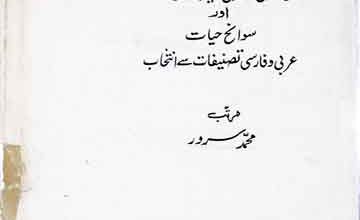 اور
سوانح حیات
عربی و فارسی تصنیفات سے انتخاب
مرتب
محمد سرور